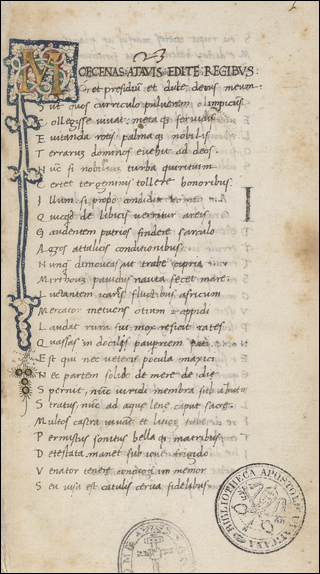 MOECENAS ATAVIS EDITE REGIBVS:
O, et presidiũ et dulce decus meum
Sut quos curriculo puluerem olimpicũ
Collegisse iuuat, metaq; feruidis
Euitanda rotis palmaq; nobilis
Terrarum dominos euehit ad deos.
Hũc si nobiliũ turba quiritium
Certet tergeminis tollere honoribus
Illum si proprio condidit horreo
Quicqd de libicis verritur areis
Gaudentem patrios findere sarculo
Agros attalicis conditionibus
Nunq dimoueas ut trabe cipria
Mirthoum pauidus nauta secet mare.
Luctantem icariis fluctibus africum
Mercator metuens otium & oppidi
Laudat rura sui mox reficit rates
Quassas indocilis pauperiem pati
Est qui nec ueteris pocula maxici
Nec partem solido de mere die
Spernit, nũc uiridi membra sub arbuto
Stratus, nũc ad aque lene caput sacre.
Multos castra iuuant et lituo tube
Permixtus sonitus bellaq; matribus
Detestata. manet sub ioue frigido
Venator tenere coniugis inmemor
Seu uisa est catulis cerua fidelibus
BIBLIOTHECA APOSTOLICA VATICANA